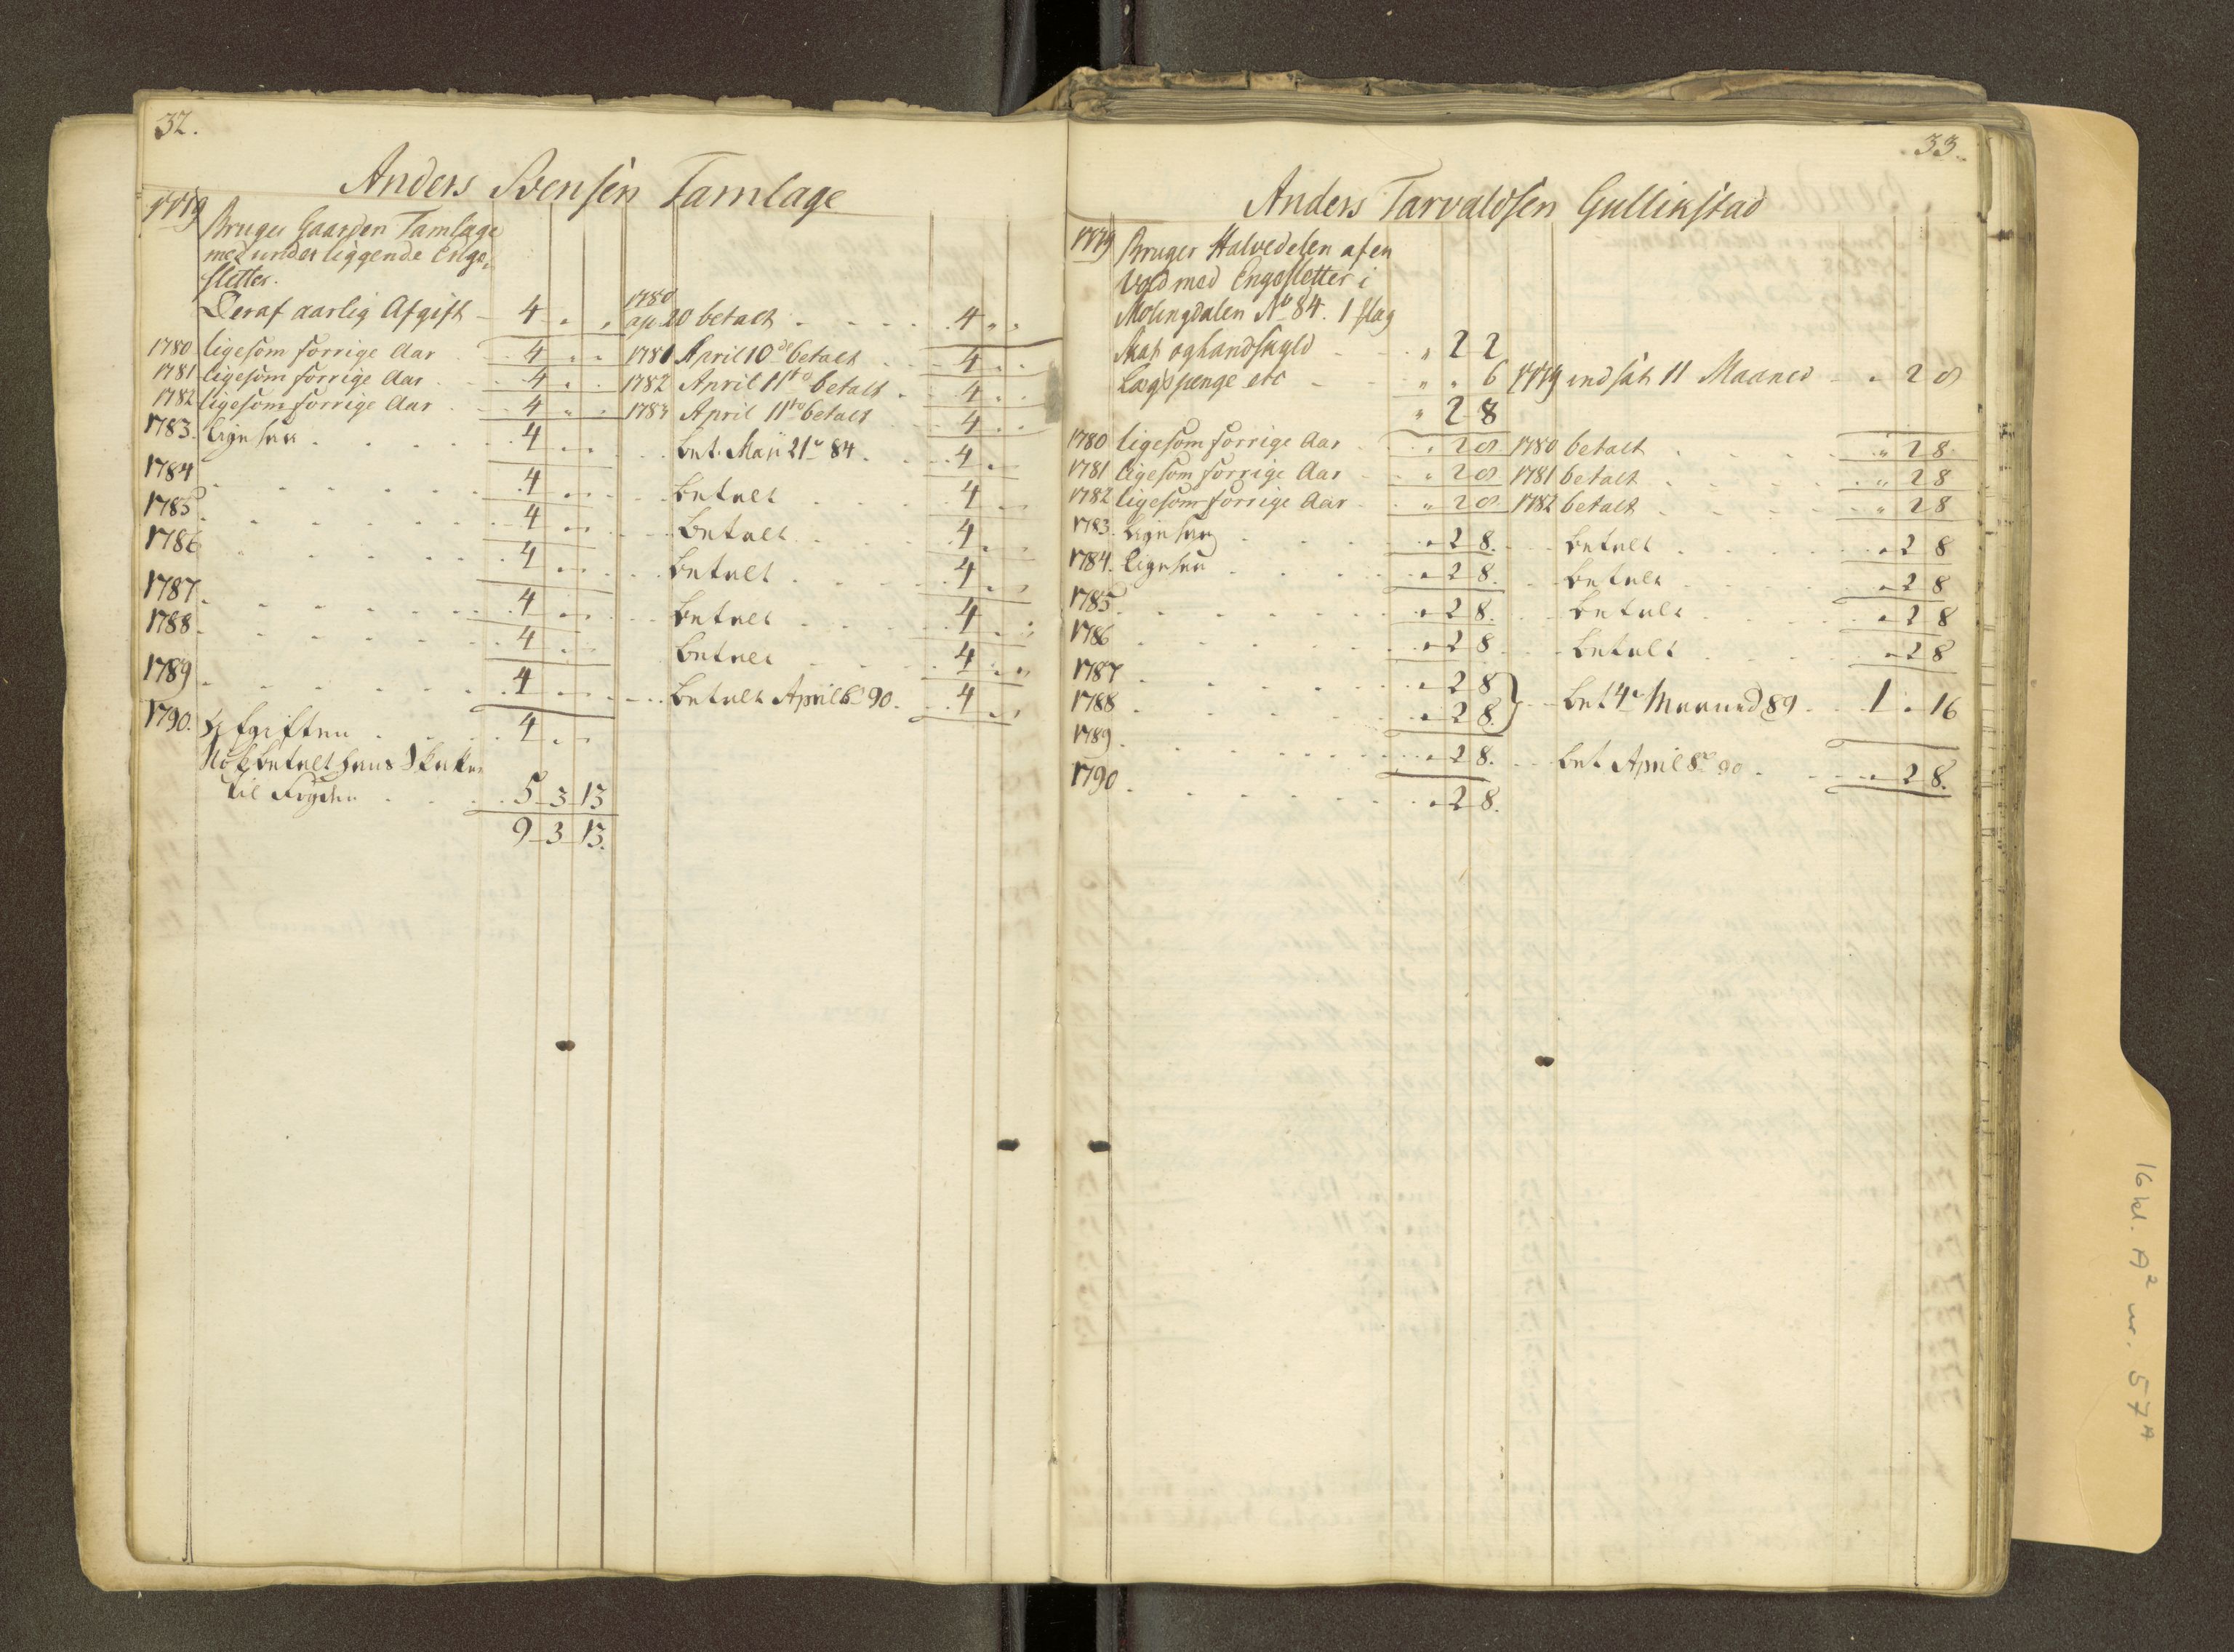 32.
Anders Svensen Tamlage
1779 Bruger Gaarden Tamlage
med underliggende Enge-
sletter.
Deraf aarlig Afgift 4 " " 1780 ap. 20 betalt 4 " "
1780 ligesom forrige Aar 4 " " 1781 April 10de betalt 4 " "
1781 ligesom forrige Aar 4 " " 1782 April 11te betalt 4 " "
1782 ligesom forrige Aar 4 " " 1783 April 11te betalt 4 " "
1783. 4 " " bet. Maji 21e 84. 4 " "
1784 4 " " betalt 4 " "
1785. 4 " " betalt 4 " "
1786 4 " " betalt 4 " "
1787. 4 " " betalt 4 " "
1788. 4 " " betalt 4 " "
1789. 4 " " betalt April 6 90. 4 " "
1790. Afgiften 4 " "
Nok betalt hans Skatter
til Fogden 5 3 13
9 3 13.
33.
Anders Tarvaldsen Gullikstad
1779 Bruger Halvedelen af en
Vold med Engesletter i
Molingdalen No 84. 1 slag
Skat og Landskyld " 2 2
Lægspenge etc " " 6 1779 indsat 11 Maaned " 2 8
" 2 8
1780 ligesom forrige Aar " 2 8 1780 betalt " 2 8
1781 ligesom forrige Aar " 2 8 1781 betalt " 2 8
1782 ligesom forrige Aar " 2 8 1782 betalt " 2 8
1783. " 2 8. betalt " 2 8
1784. " 2 8. betalt " 2 8
1785. " 2 8. betalt " 2 8
1786 " 2 8 betalt " 2 8
1787 " 2 8
1788 " 2 8. } bet 4e Maaned 89. 1 " 16
1789. " 2 8. bet April 8de 90. " 2 8.
1790. " 2 8.
16 kl. A2 nr. 57A